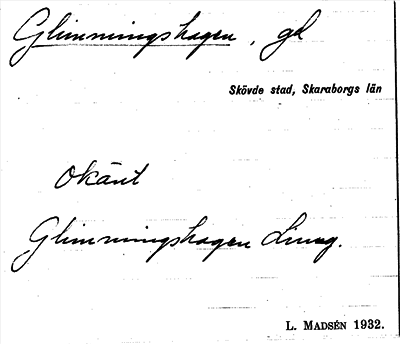 Glimmingshagen, gd
Skövde stad, Skaraborgs län
Okänt
Glimmingshagen
L. MADSÉN 1932.